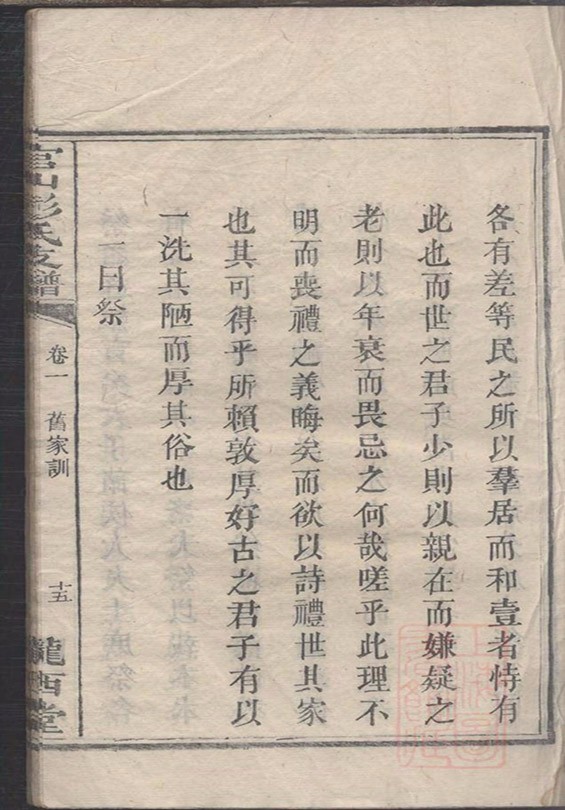 各有差等民之所以羣居而和壹者恃有
此也而世之君子少則以親在而嫌疑之
老則以年衰而畏忌之何哉嗟乎此理不
明而喪禮之義晦矣而欲以詩禮世其家
也其可得乎所賴敦厚好古之君子有以
一洗其陋而厚其俗也
一曰祭
官山彭氏支譜
卷一
舊家訓
十五
隴西堂